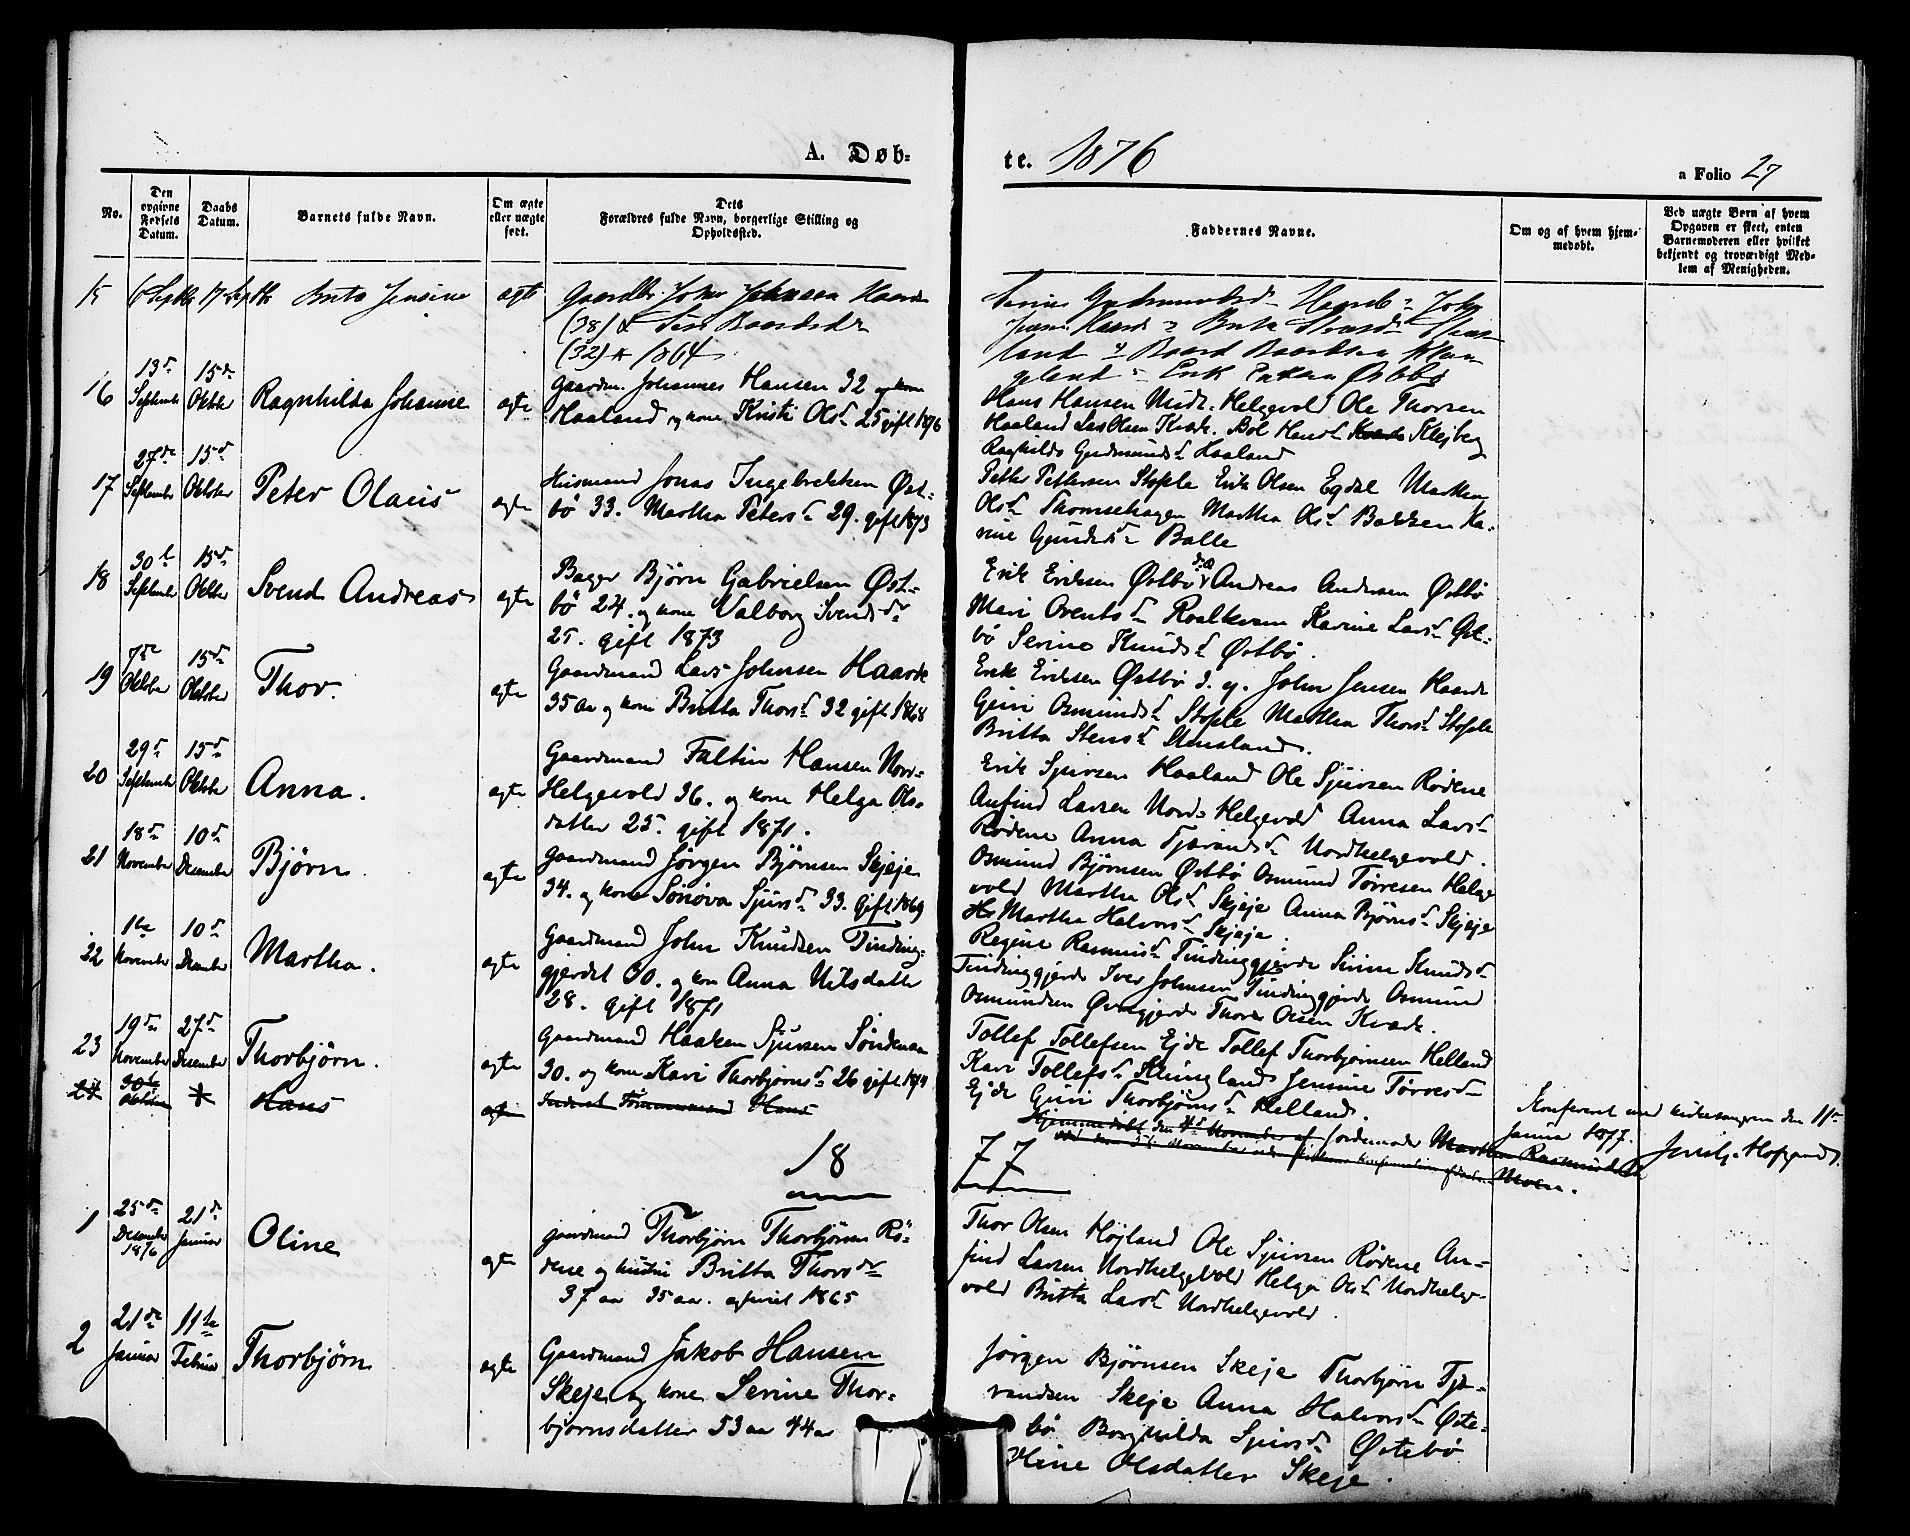 A. Døb=
te. 1876
a Folio 27
No.
Den opgivne Fødsels Datum.
Daabs Datum.
Barnets fulde Navn.
Om ægte eller uægte født.
Dets Forældres fulde Navn, borgerlige Stilling og Opholdssted.
Faddernes Navne.
Om og af hvem hjemmedøbt.
Ved uægte Børn af hvem Opgaven er skeet, enten Barnemoderen eller hvilket bekjendt og troværdigt Medlem af Menigheden.
15 6 Septbr 17 Septbr Brita Jensine ægte Gaardbr. John Johnsen Haarde
(38) & Siri Baardsdr
(32) * 1864
Baard Baardsen
Erik Eriksen Østbø
16 13de September 15de Oktober Ragnhilda Johanne ægte Gaardm. Johannes Hansen 32
Haaland og kone Kristi Olsd 25 gift 1876
Hans Hansen Midt-Helgevold Ole Thorsen
Haaland Lars Olsen Kvæk. Bol Hansd Skejberg
Ragnhilda Gudmundsd Haaland
17 27de September 15d Oktober Peter Olaus ægte Husmand Jonas Ingebretsen Øst=
bø 33. Martha Petersd 29. gift 1873
Petter Pettersen Stople Erik Olsen Egdal Marthe
Olsd Thomsehagen Martha Olsd Bakken Ka=
rine Gundersd Balle
18 30te September 15d Oktober Svend Andreas ægte Bager Bjørn Gabrielsen Øst=
bø 24. og kone Valborg Svendsdr
25. gift 1873
Erik Eriksen Østbø Andreas Andersen Østbø
Mari Orentsd Roalkvam Karine Larsd Øst=
bø Serine Knudsd Østbø.
19 7de Oktober 15d Oktober Thor. ægte Gaardmand Lars Johnsen Haarde
35 aar og kone Britta Thorsd 32 gift 1868
Erik Eriksen Østbø d. y. John Jensen Haarde
Guri Osmundsd Stople Martha Thorsd Stople
Britta Stensd Stensland.
20 29d September 15d Oktober Anna. ægte Gaardmand Faltin Hansen Nord=
Helgevold 36. og kone Helga Ols=
datter 25. gift 1871.
Erik Sjursen Haaland Ole Sjursen Rødene
Anfind Larsen Nord-Helgevold Anna Larsd
Rødene Anna Tjerandsd Nordhelgevold.
21 18d November 10d December Bjørn ægte Gaardmand Jørgen Bjørnsen Skjeje
34. og kone Sønova Sjursd 33. gift 1869
Osmund Bjørnsen Østbø Osmund Tørresen Helge
vold Martha Olsd Skjeje Anna Bjørnsd Skjeje
Martha Halvorsd Skjeje.
22 1te November 10d December Martha. ægte Gaardmand John Knudsen Tinding=
gjerdet 30. og kone Anna Nilsdatter
28. gift 1871
Regine Rasmusd Tindinggjerde Sirine Knudsd
Tindinggjerde Iver Johnsen Tindinggjerde Osmund
Osmundsen Øvregjerde Thore Olsen Kvæk.
23 19de November 27d December Thorbjørn. ægte Gaardmand Haaken Sjursen Søndenaa
30. og kone Kari Thorbjørnsd 26 gift 1874
Tollef Tollefsen Ejde Tollef Thorbjørnsen Helland
Kari Tollefsd Klungland Jensine Tørresd
Ejde Guri Thorbjørnsd Helland.
24 30te Oktober * Hans ægte Inderst Hans
Hjemmedøbt den 4d November af Jordemoder Martha Rasmusd
Moen.
Konfereret med kirkesangeren den 11te
Januar 1877.
18
77
1 25de December 1876 21de Januar Oline ægte Gaardmand Thorbjørn Thorbjørnsen Rø=
dene og hustru Britta Thorsdr
37 aar 35 aar. ægteviet 1865
Thor Olsen Højland Ole Sjursen Rødene An=
find Larsen Nordhelgevold Helga Olsd Nordhelge=
vold Britta Larsd Nordhelgevold.
2 21de Januar 11te Februar Thorbjørn ægte Gaardmand Jakob Hansen
Skeje og kone Serine Thor=
bjørnsdatter 53 aar 44 aar
Jørgen Bjørnsen Skeje Thorbjørn Tje=
randsen Skeje Anna Halvorsd Øste=
bø Borghilda Sjursd Østebø
Stine Olsdatter Skeje.